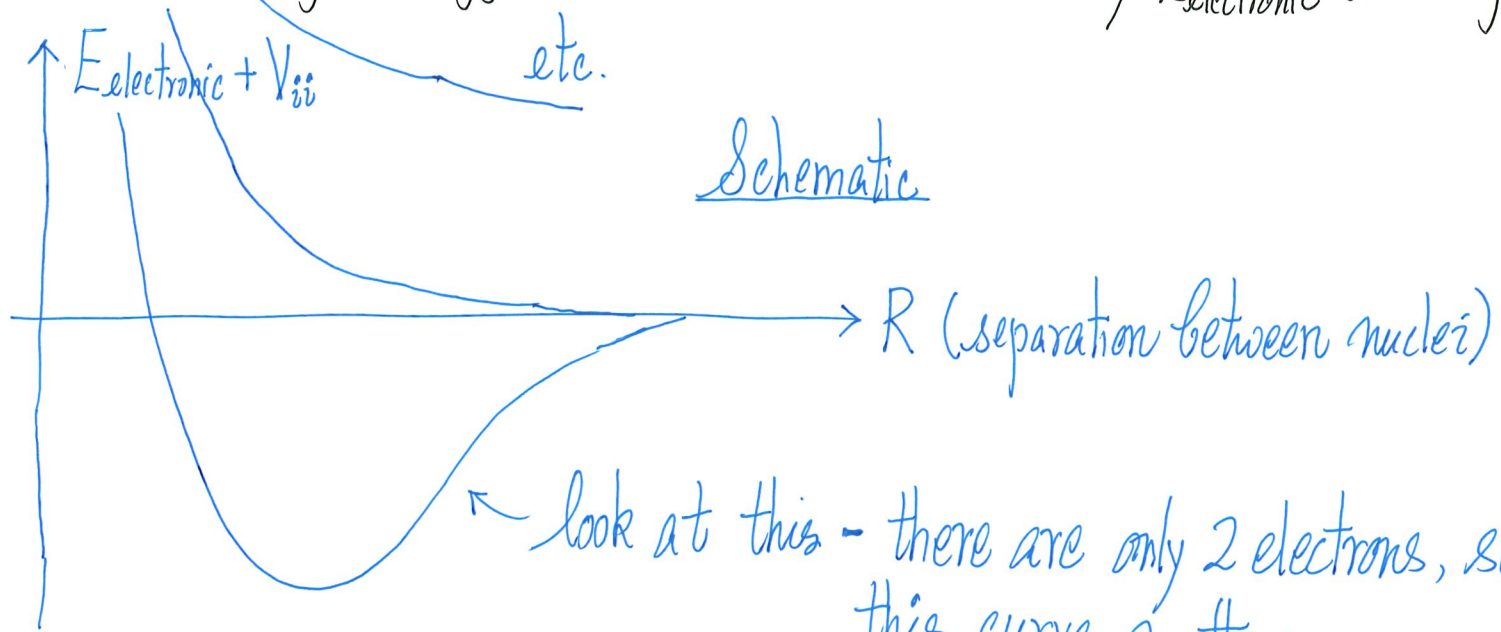 etc.
Eelectronic + Vii
Schematic
R (separation between nuclei)
look at this - there are only 2 electrons,
this curve